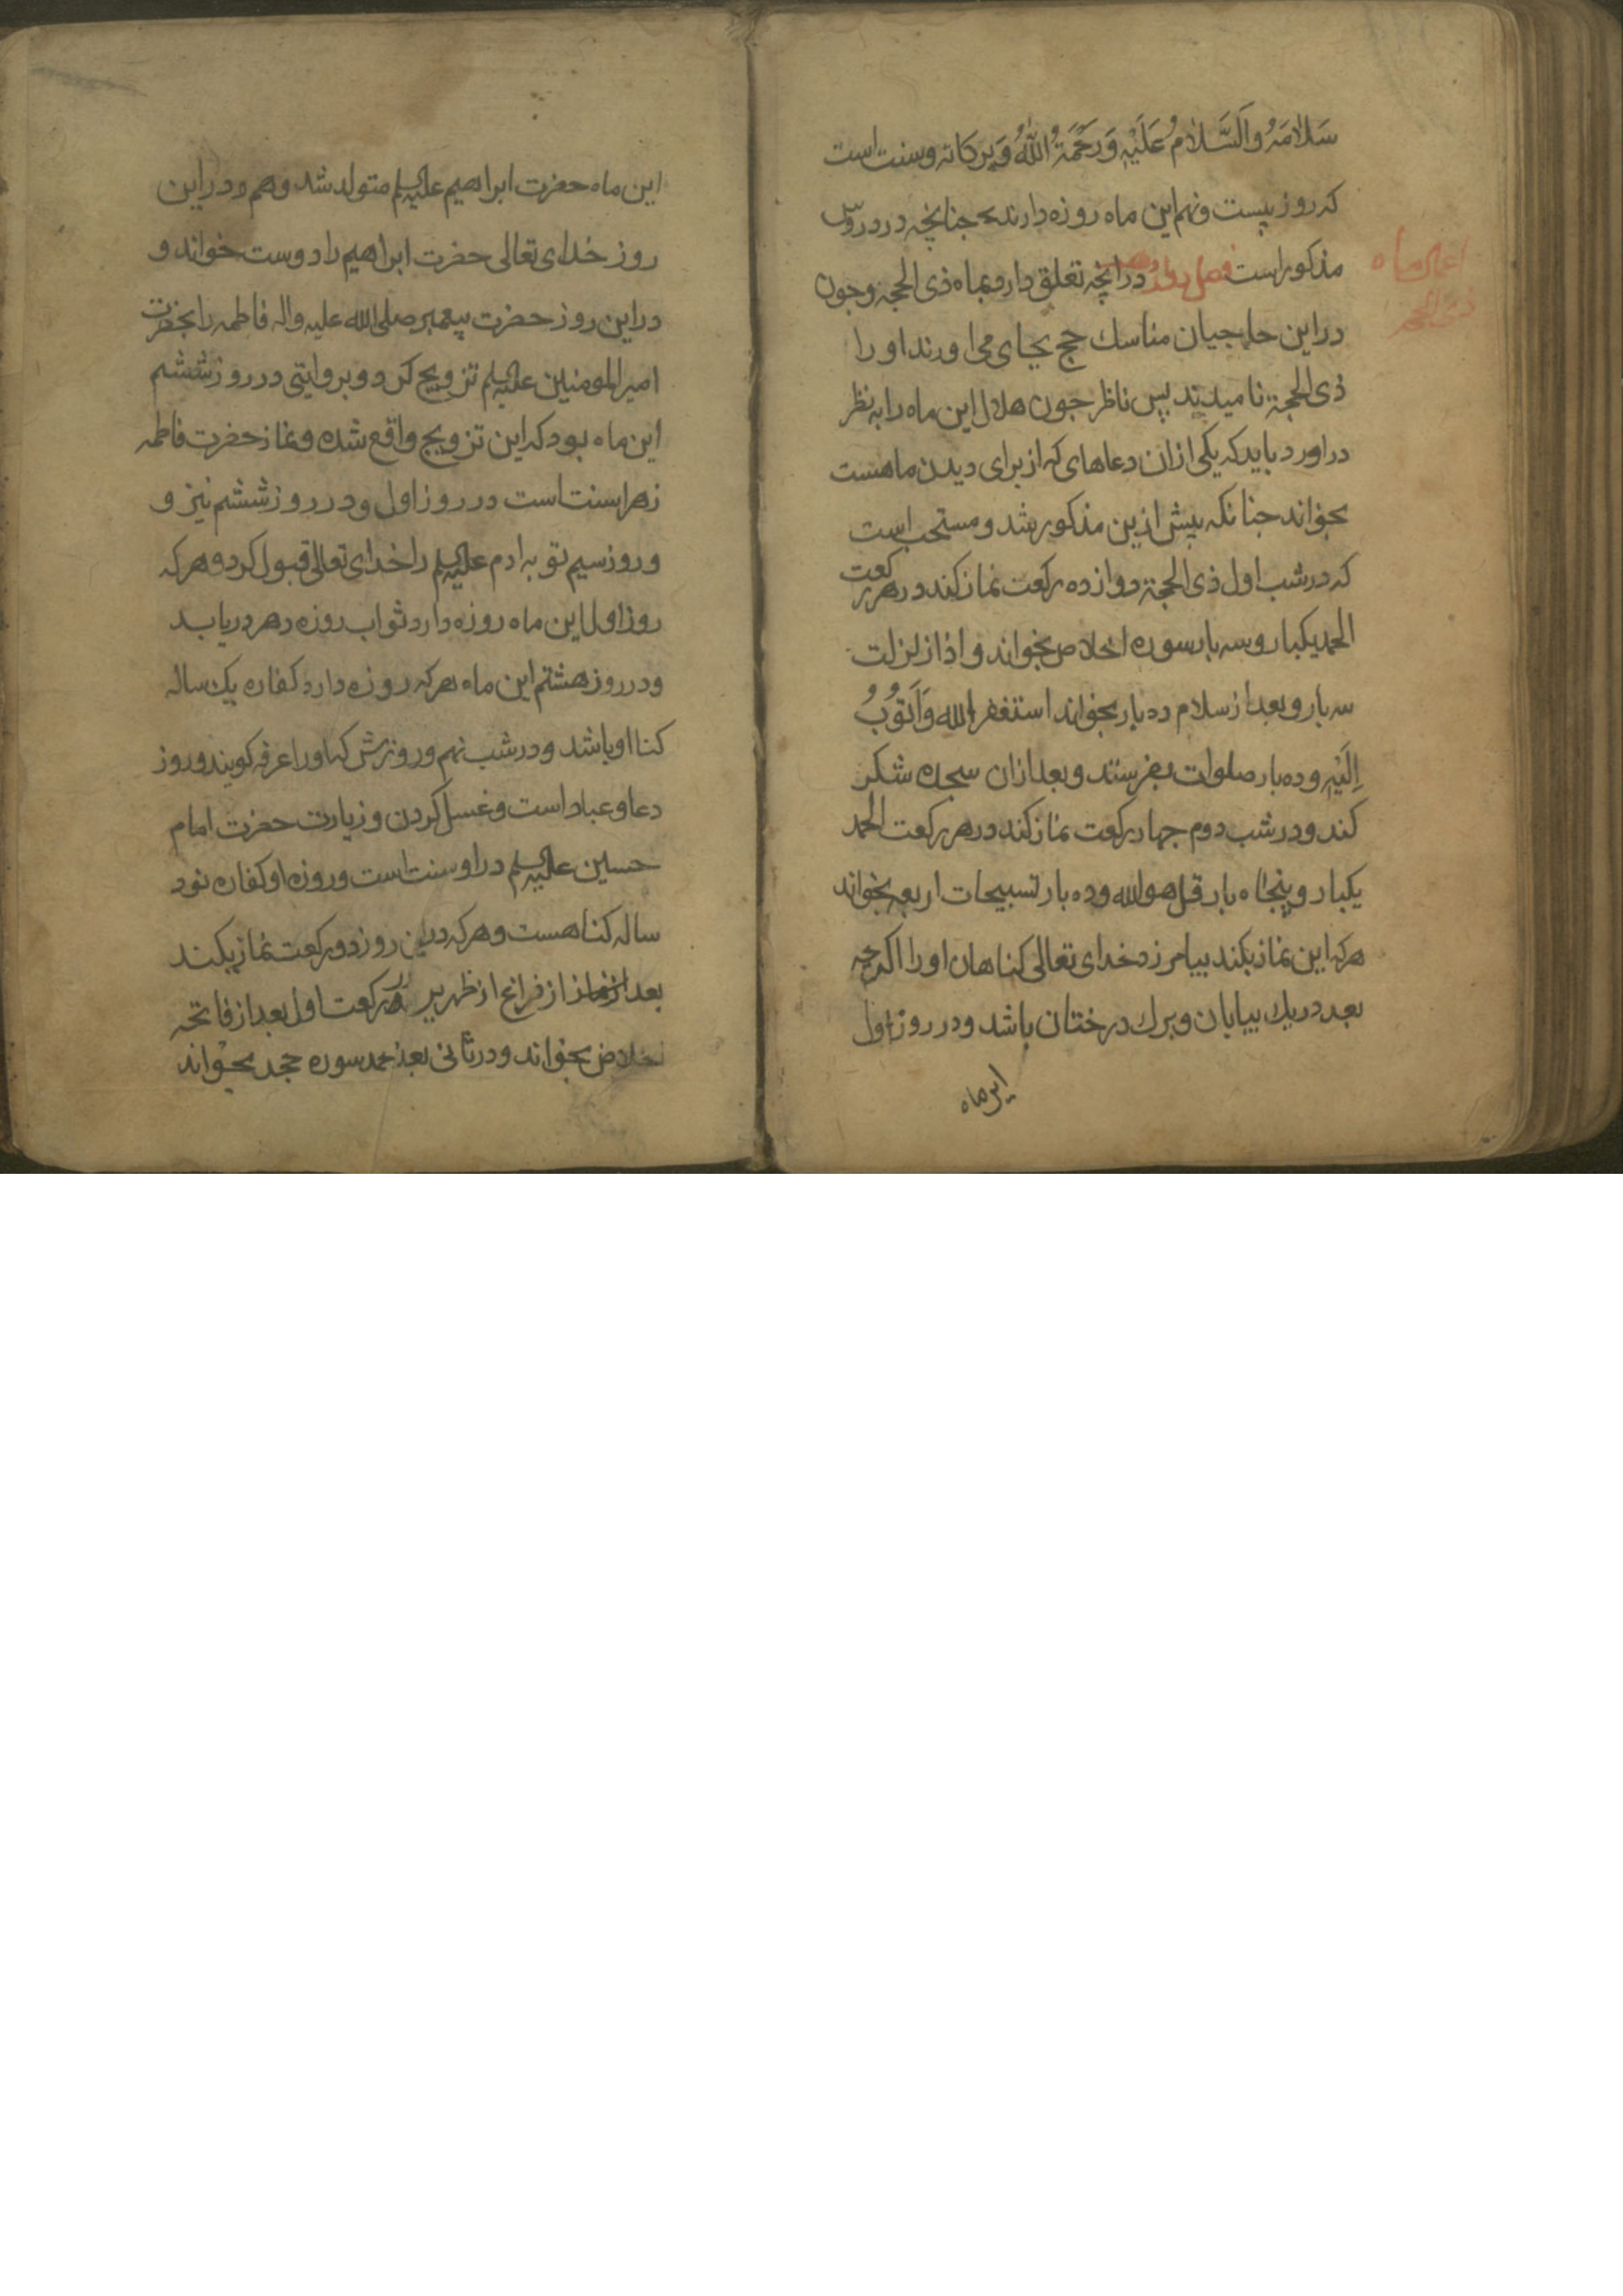 سَلاٰمَهُ وَالسَّلاٰمُ عَلَيْهِ وَرَحْمَةُ اللّٰهُ وَبَرَكاته وسنت است
که روز بیست ونهم این ماه روزه دارند جنانچه در
مذکور است فصل دوازدهم درانچه تعلق دارد بماه ذی الحجه وجون
دراین حاجیان مناسك حج بجای می اورند او را
ذی الحجة نامیدند پس ناظر جون هلال این ماه را به نظر
دراورد باید که یکی ازان دعاهای که از برای دیدن ماهست
بخواند جنانکه پیش ازین مذکور شد و مستحب است
که درشب اول ذی الحجة دوازده رکعت نماز کند در هر رکعت
الحمد یکبار وسه بار سوره اخلاص بخواند و اذا زلزلت
سه بار و بعد از سلام ده بار بخواند استغفر الله وَاَتُوبُ
اِلَیْهِ وده بار صلوات بفرستد و بعد ازان سجده شکر
کند ودر شب دوم جهار رکعت نماز کند در هر رکعت الحمد
یکبار و پنجاه بار قل هو الله وده بار تسبیحات اربعه بخواند
هرکه این نماز بکند بیامرزد خدای تعالی کناهان او را اکرجه
بعدد ریك بیابان و برك درختان باشد و در روز اول
این ماه
اعمال ماه
ذی الحجه
این ماه حضرت ابراهیم علیه السلم متولد شد وهم در این
روز خدای تعالی حضرت ابراهیم را دوست خواند و
دراین روز حضرت پیغمبر صلی الله علیه واله فاطمه را بحضرت
امیر المومنین علیه السلم تزویج کرد و بروایتی در روز ششم
این ماه بود که این تزویج واقع شده ونماز حضرت فاطمه
زهرا سنت است در روز اول و در روز ششم نیز و
و روز سیم توبه ادم علیه السلم را خدای تعالی قبول کرد و هر که
روز اول این ماه روزه دارد ثواب روزه دهر دریابد
ودر روز هشتم این ماه هر که روزه دارد کفاره یك ساله
کنا او باشد و در شب نهم و روزش که او را عرفه کویند و روز
دعا و عباد است و غسل کردن و زیارت حضرت امام
حسین علیه السلم در او سنت است و روزه او کفاره نود
ساله کناهست وهرکه درین روز دو رکعت نماز بکند
بعد از نماز از فراغ از ظهر در رکعت اول بعد از فاتحه
اخلاص بخواند و در ثانی بعد حمد سوره جحد بخواند